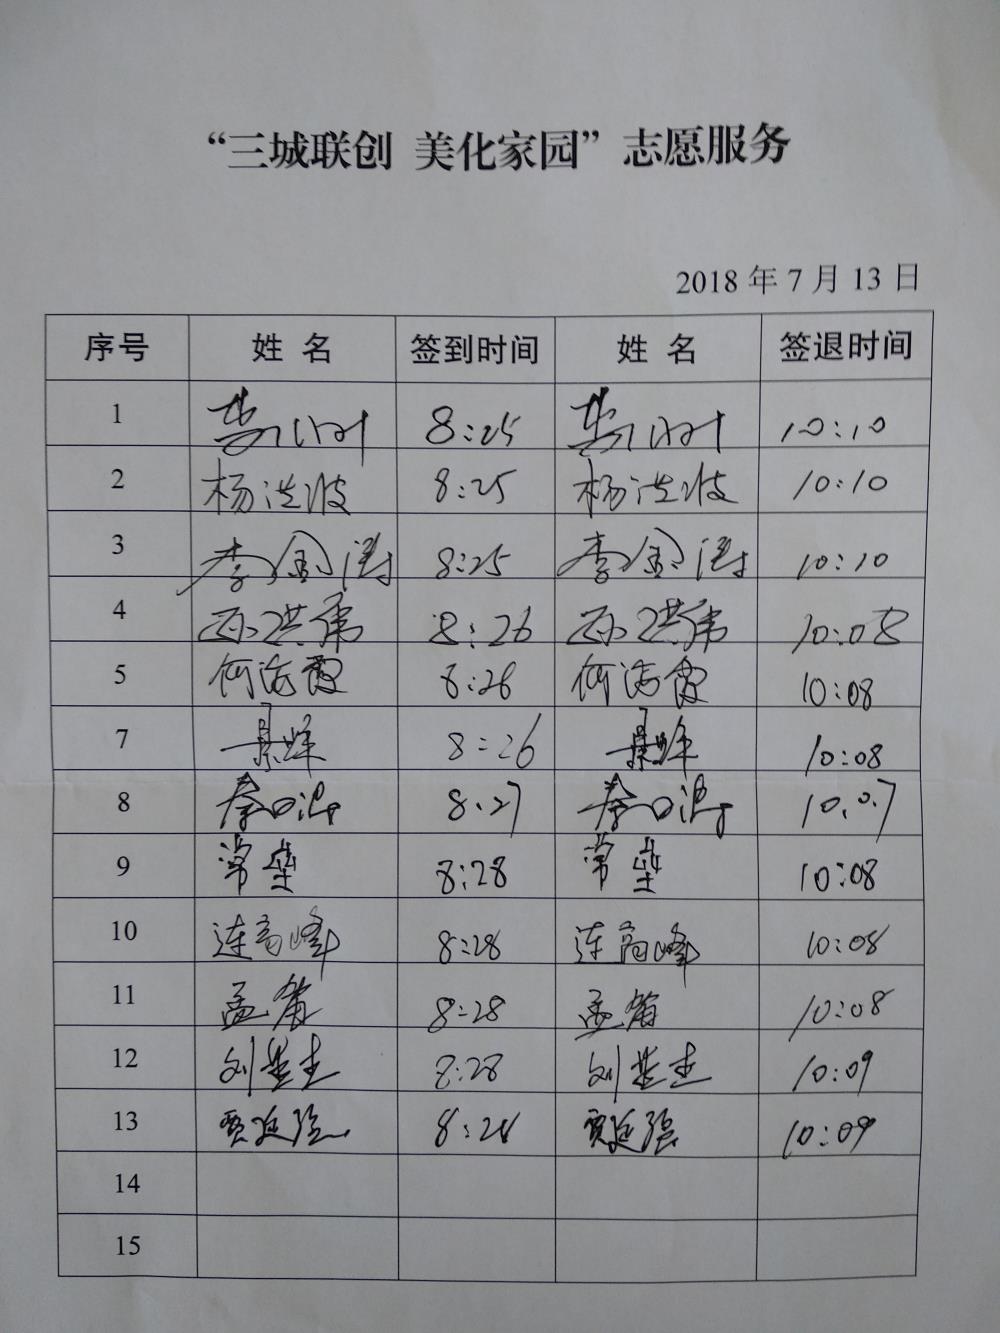 “三城联创 美化家园”志愿服务
2018 年 7 月 13 日
序号 姓 名 签到时间 姓 名 签退时间
1 8:25 10:10
2 杨洪波 8:25 杨洪波 10:10
3 李金涛 8:25 李金涛 10:10
4 8:26 10:08
5 何海霞 8:26 何海霞 10:08
7 景峰 8:26 景峰 10:08
8 8:27 10:07
9 常莹 8:28 常莹 10:08
10 连高峰 8:28 连高峰 10:08
11 8:28 10:08
12 8:28 10:09
13 贾延强 8:28 贾延强 10:09
14
15